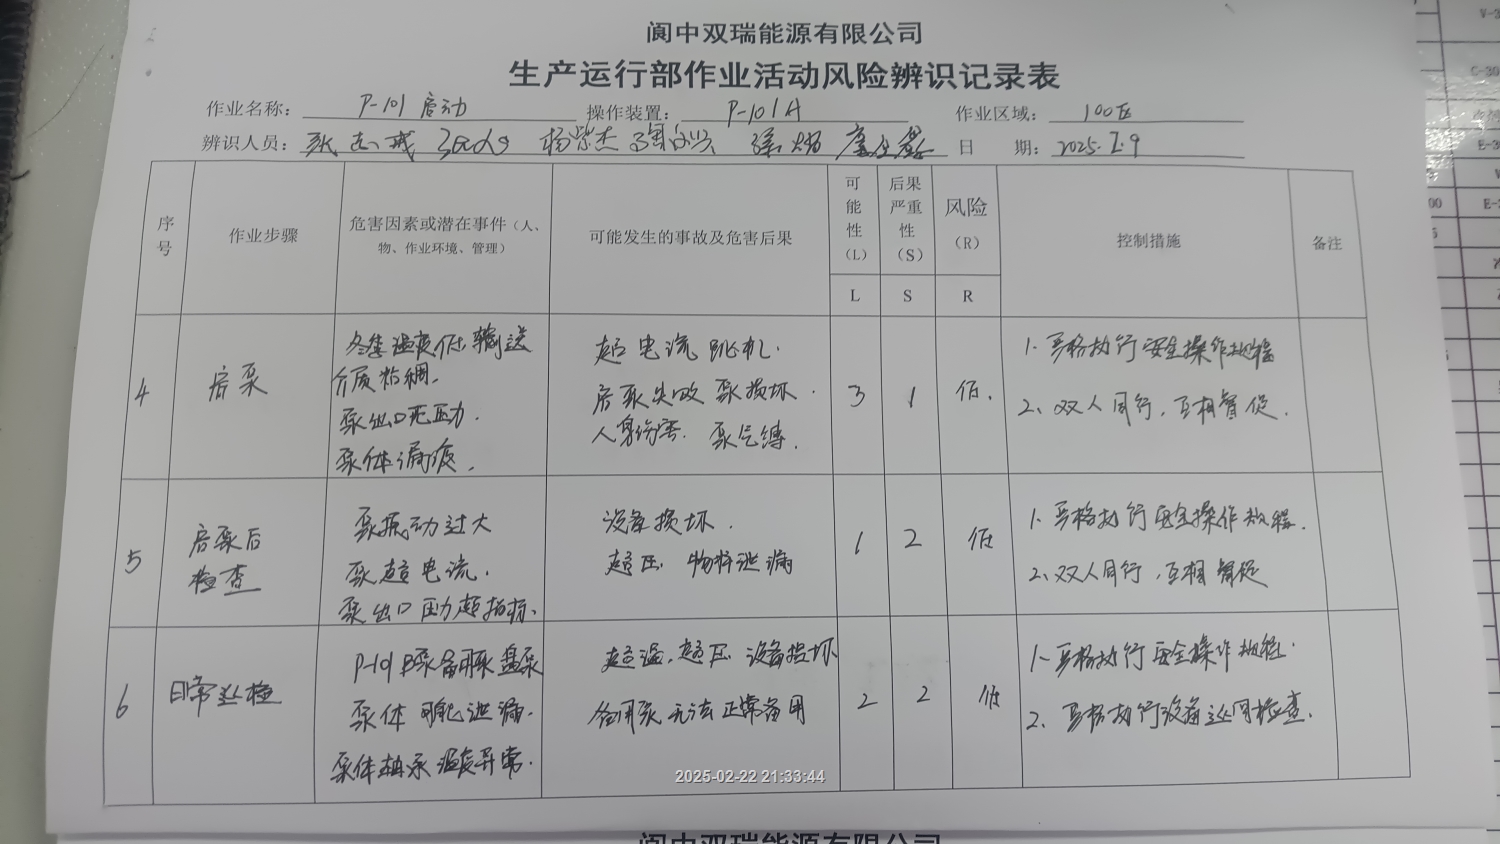 阆中双瑞能源有限公司
生产运行部作业活动风险辨识记录表
作业名称： P-101 启动 操作装置： P-101A 作业区域： 100区
辨识人员： 杨紫杰 日 期： 2025.2.9
序号 作业步骤 危害因素或潜在事件（人、物、作业环境、管理） 可能发生的事故及危害后果 可能性（L） 后果严重性（S） 风险（R） 控制措施 备注
L S R
4 启泵
冬季温度低 输送
介质粘稠.
泵出口无压力.
泵体漏液.
超电流 跳机.
启泵失败 泵损坏.
人身伤害. 泵气缚.
3 1 低.
1. 严格执行安全操作规程
2、双人同行，互相督促.
5 启泵后
检查
泵振动过大
泵超电流.
泵出口压力超指标.
设备损坏.
超压 物料泄漏
1 2 低
1. 严格执行安全操作规程.
2、双人同行，互相督促
6 日常巡检
P-101B泵备用泵盘泵
泵体 泄漏.
泵体轴承温度异常.
超温，超压 设备损坏
备用泵无法正常备用
2 2 低
1. 严格执行安全操作规程.
2. 严格执行设备巡回检查.
2025-02-22 21:33:44
阆中双瑞能源有限公司